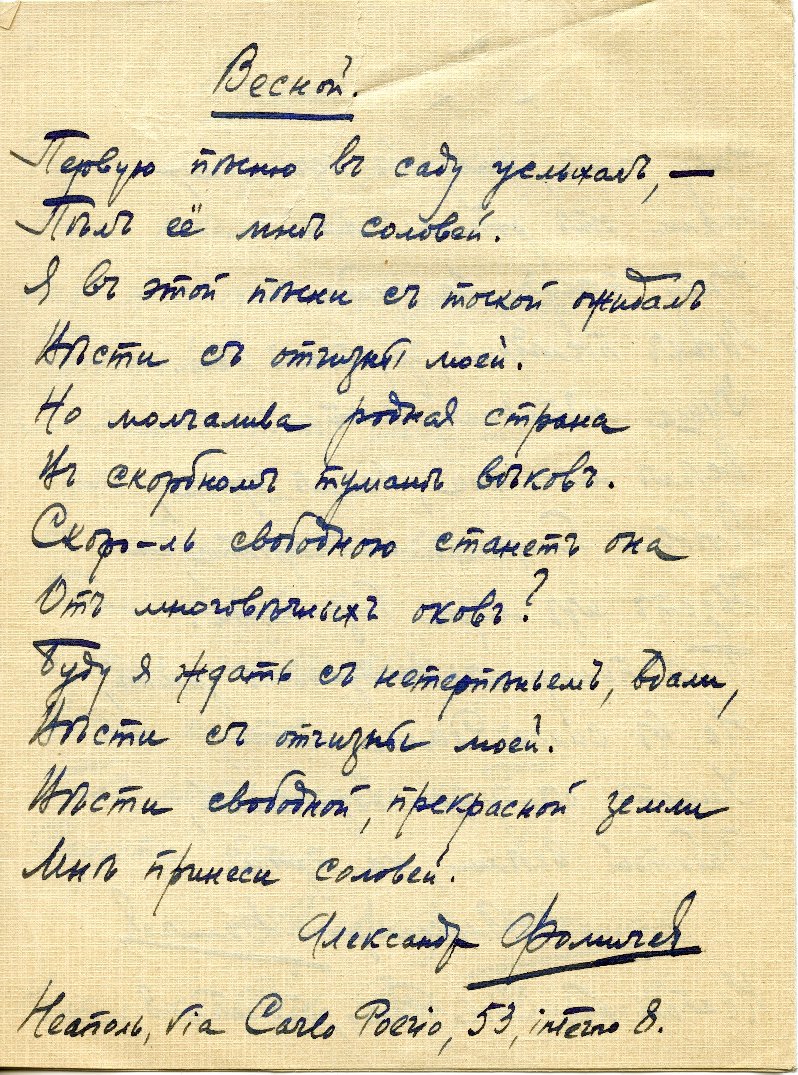 Весной.
Первую пѣсню въ саду услыхалъ, —
Пѣлъ её мнѣ соловей.
Я въ этой пѣсни съ тоской ожидалъ
Вѣсти съ отчизны моей.
Но молчалива родная страна
Въ скорбномъ туманѣ вѣковъ.
Скоро-ль свободною станетъ она
Отъ многовѣчныхъ оковъ?
Буду я ждать съ нетерпѣньемъ, вдали,
Вѣсти съ отчизны моей.
Вѣсти свободной, прекрасной земли
Мнѣ принеси соловей.
Александр Фомичев
Неаполь, Via Carlo Poerio, 53, interno 8.